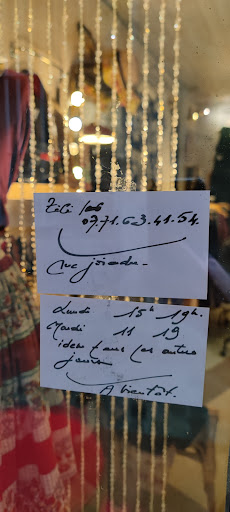 07.71.63.41.54.
me joindre.
Lundi 15h 19h.
Mardi 11 19
idem tous les autres
jours
A bientôt.